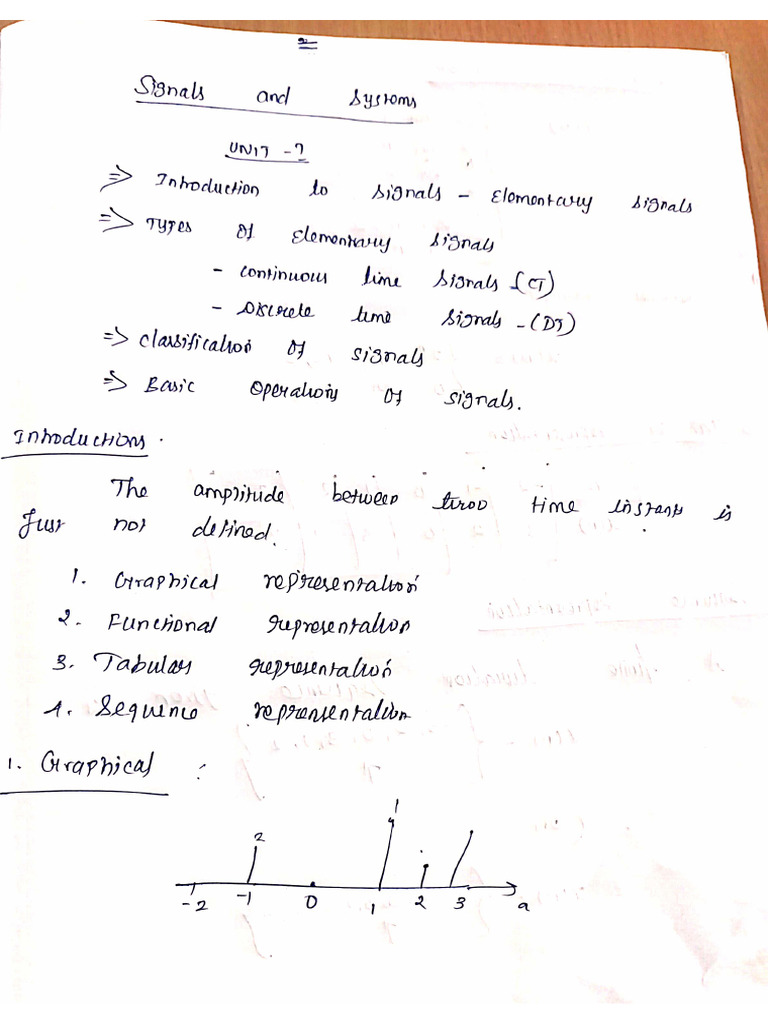 Signals and Systems
UNIT -
=> Introduction to signals - Elementary signals
=> Types of Elementary signals
- continuous time signals -(CT)
- Discrete time signals -(DT)
=> Classification of signals
=> Basic Operations of signals.
Introductions.
The amplitude between two time instants is
just not defined.
1. Graphical representation
2. Functional representation
3. Tabular representation
4. Sequence representation
1. Graphical :
2
-2 -1 0 1 2 3